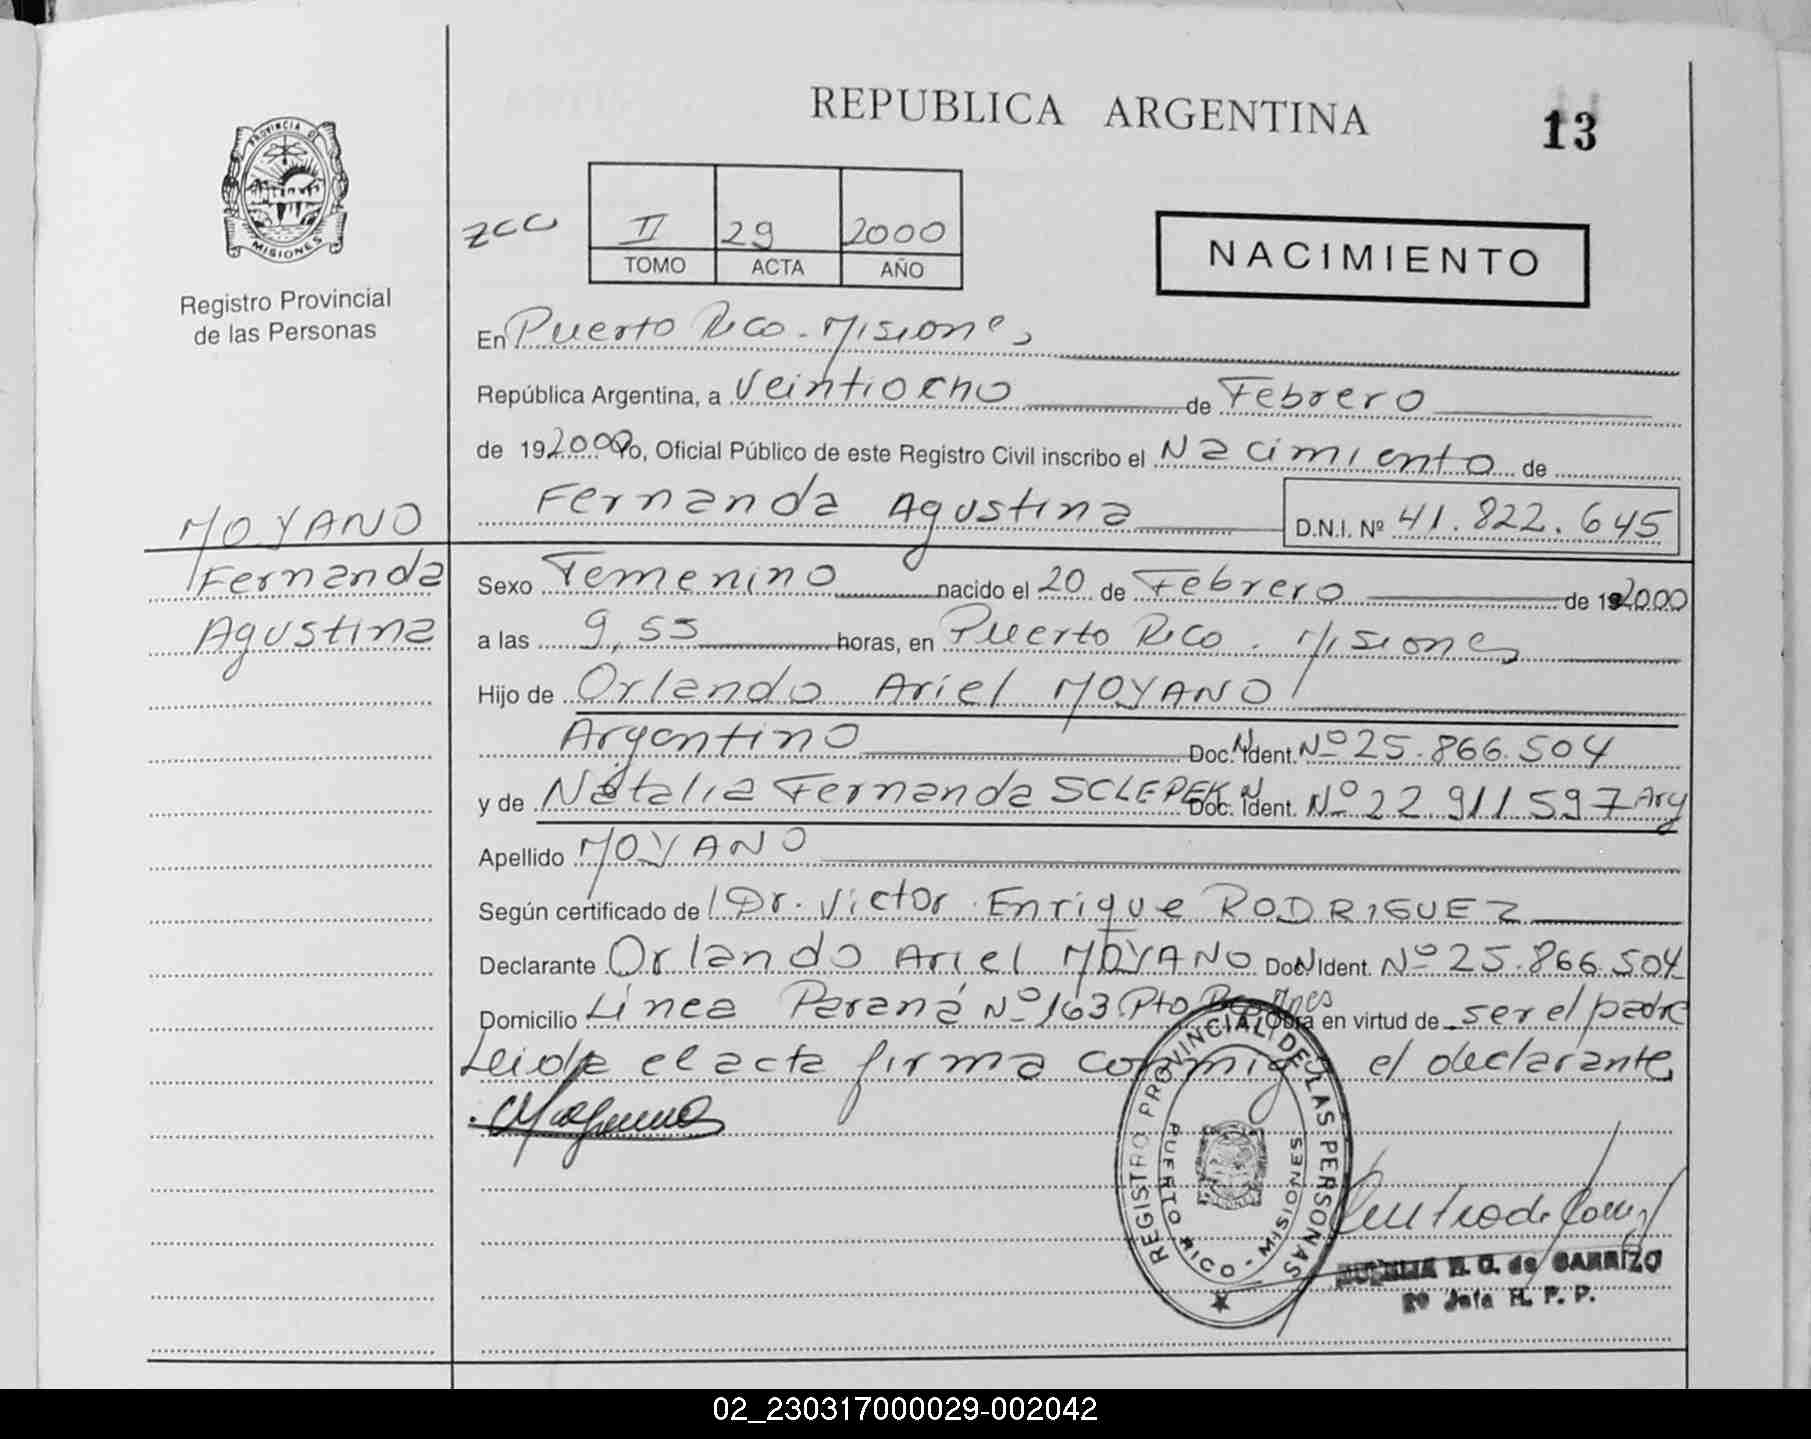 REPUBLICA ARGENTINA
13
PROVINCIA D
MISIONES
Registro Provincial
de las Personas
zcc
II 29 2000
TOMO ACTA AÑO
NACIMIENTO
En Puerto Rico - Misiones
República Argentina, a Veintiocho de Febrero
de 19 2000 Yo, Oficial Público de este Registro Civil inscribo el Nacimiento de
MOYANO
Fernanda Agustina D.N.I. Nº 41.822.645
Fernanda
Sexo Femenino nacido el 20 de Febrero de 19 2000
Agustina
a las 9,55 horas, en Puerto Rico - Misiones
Hijo de Orlando Ariel MOYANO
Argentino Doc. N Ident. Nº 25.866.504
y de Natalia Fernanda SCLEPEK Doc. N Ident. Nº 22.911.597 Arg
Apellido MOYANO
Según certificado de Dr. Victor Enrique RODRIGUEZ
Declarante Orlando Ariel MOYANO Doc N Ident. Nº 25.866.504
Domicilio Linea Paraná Nº 163 Pto Rco Mnes Obra en virtud de ser el padre
Leida el acta firma conmigo el declarante
REGISTRO PROVINCIAL DE LAS PERSONAS
PUERTO RICO - MISIONES
de CARRIZO
2º Jefa R. P. P.
02_230317000029-002042